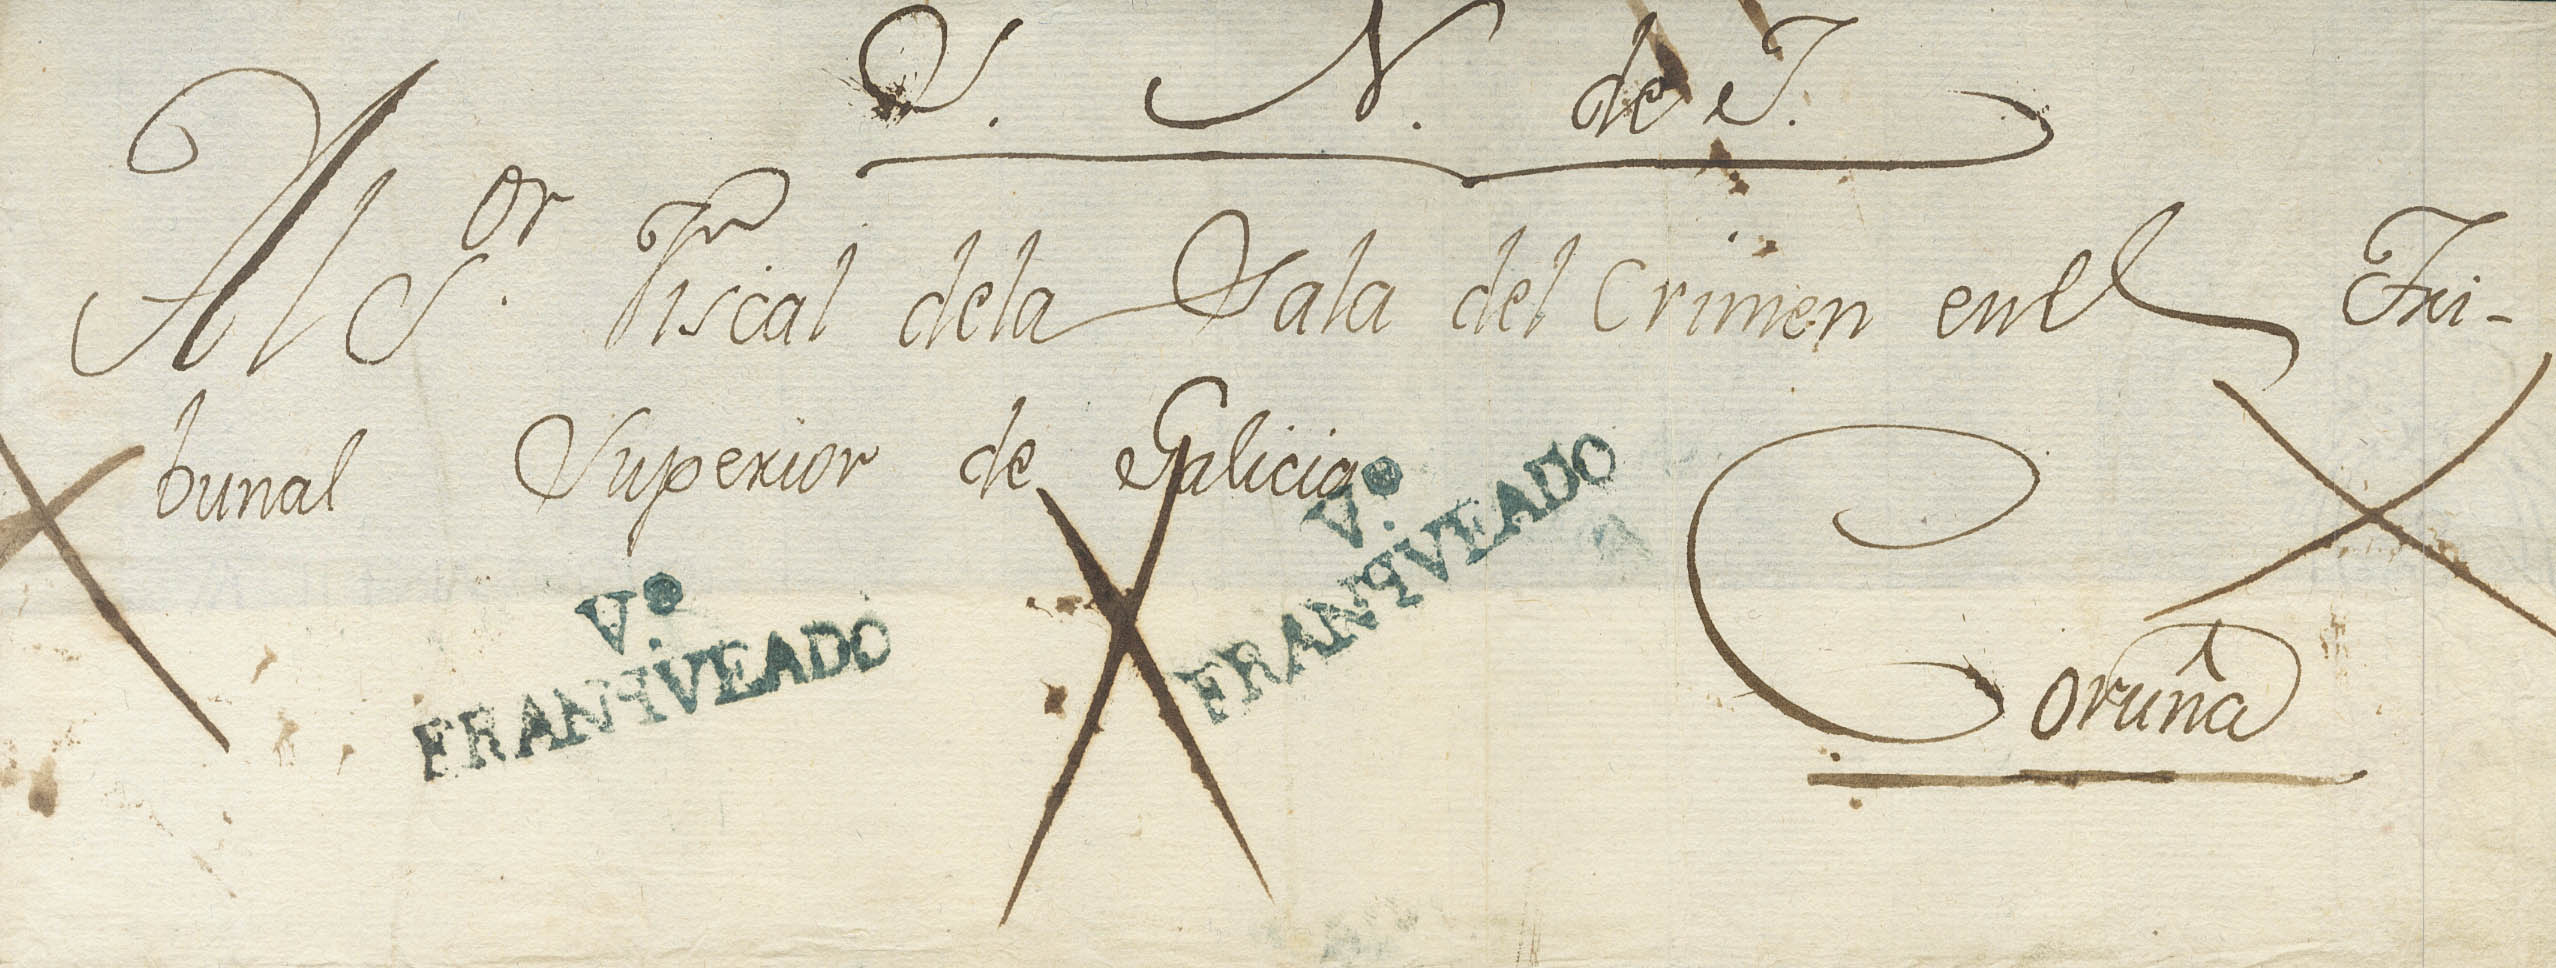 S. N. de J.
Al S.or Fiscal dela Sala del Crimen enel Tri-
bunal Superior de Galicia
Vº.
FRANQVEADO
Vº.
FRANQVEADO
Coruña